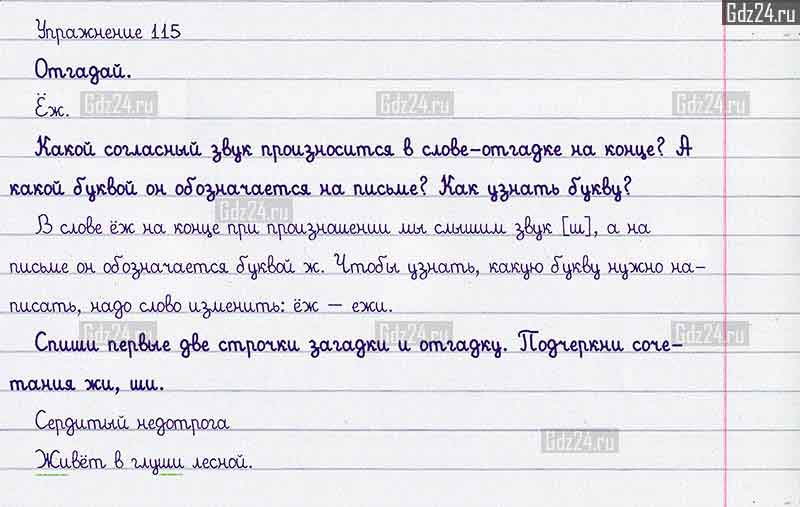 Gdz24.ru
Упражнение 115
Отгадай.
Ёж.
Gdz24.ru Gdz24.ru Gdz24.ru
Какой согласный звук произносится в слове-отгадке на конце? А
какой буквой он обозначается на письме? Как узнать букву?
Gdz24.ru
В слове ёж на конце при произношении мы слышим звук [ш], а на
письме он обозначается буквой ж. Чтобы узнать, какую букву нужно на-
писать, надо слово изменить: ёж — ежи.
Gdz24.ru Gdz24.ru Gdz24.ru
Спиши первые две строчки загадки и отгадку. Подчеркни соче-
тания жи, ши.
Сердитый недотрога
Gdz24.ru
Живёт в глуши лесной.